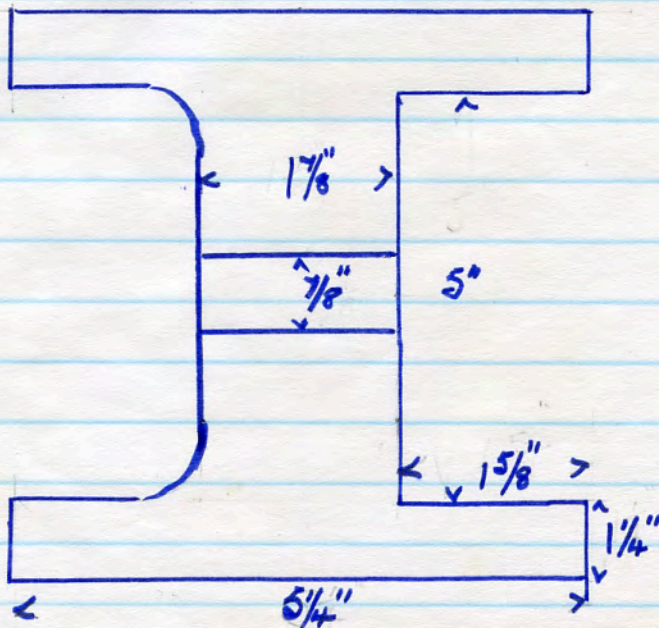 1 7/8"
7/8"
5"
1 5/8"
1 1/4"
5 1/4"